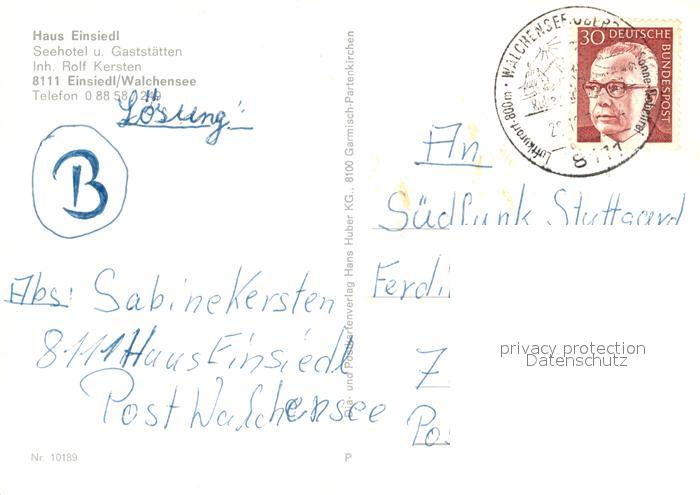 Haus Einsiedl
Seehotel u. Gaststätten
Inh. Rolf Kersten
8111 Einsiedl/Walchensee
Telefon 0 88 58
Lösung:
B
Abs: Sabine Kersten
8111 Haus Einsiedl
Post Walchensee
Nr. 10189
und Postkartenverlag Hans Huber KG., 8100 Garmisch-Partenkirchen
P
WALCHENSEE
Luftkurort · 800m
8111
30 DEUTSCHE BUNDESPOST
An
Südfunk Stuttgard
Ferdi
7
Po
privacy protection
Datenschutz